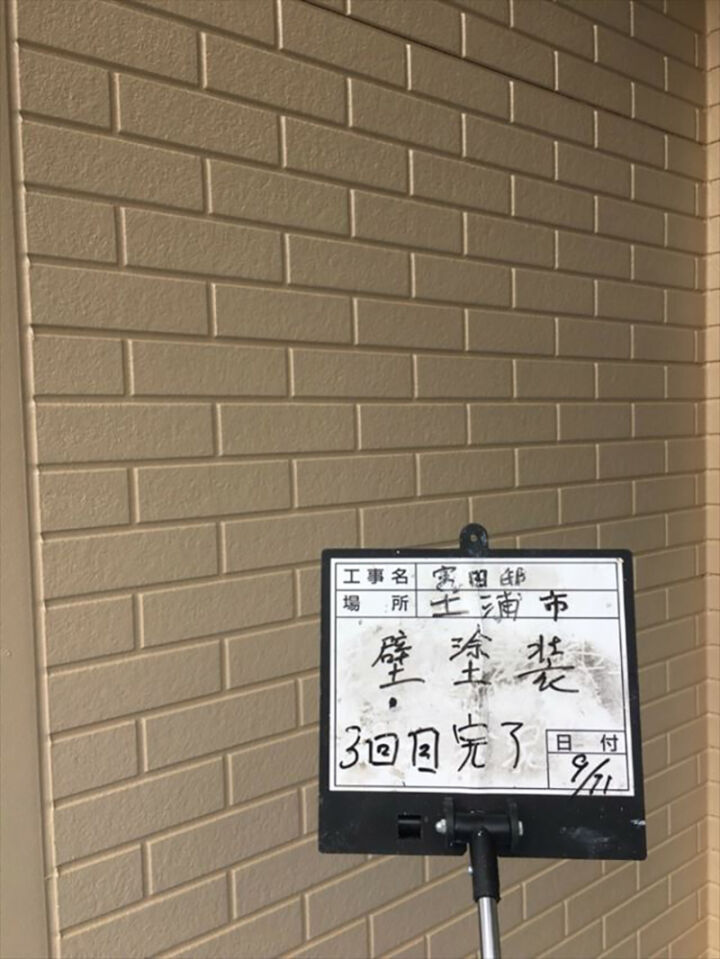 工事名 富田邸
場所 土浦市
壁塗装
3回目完了
日付
9/11